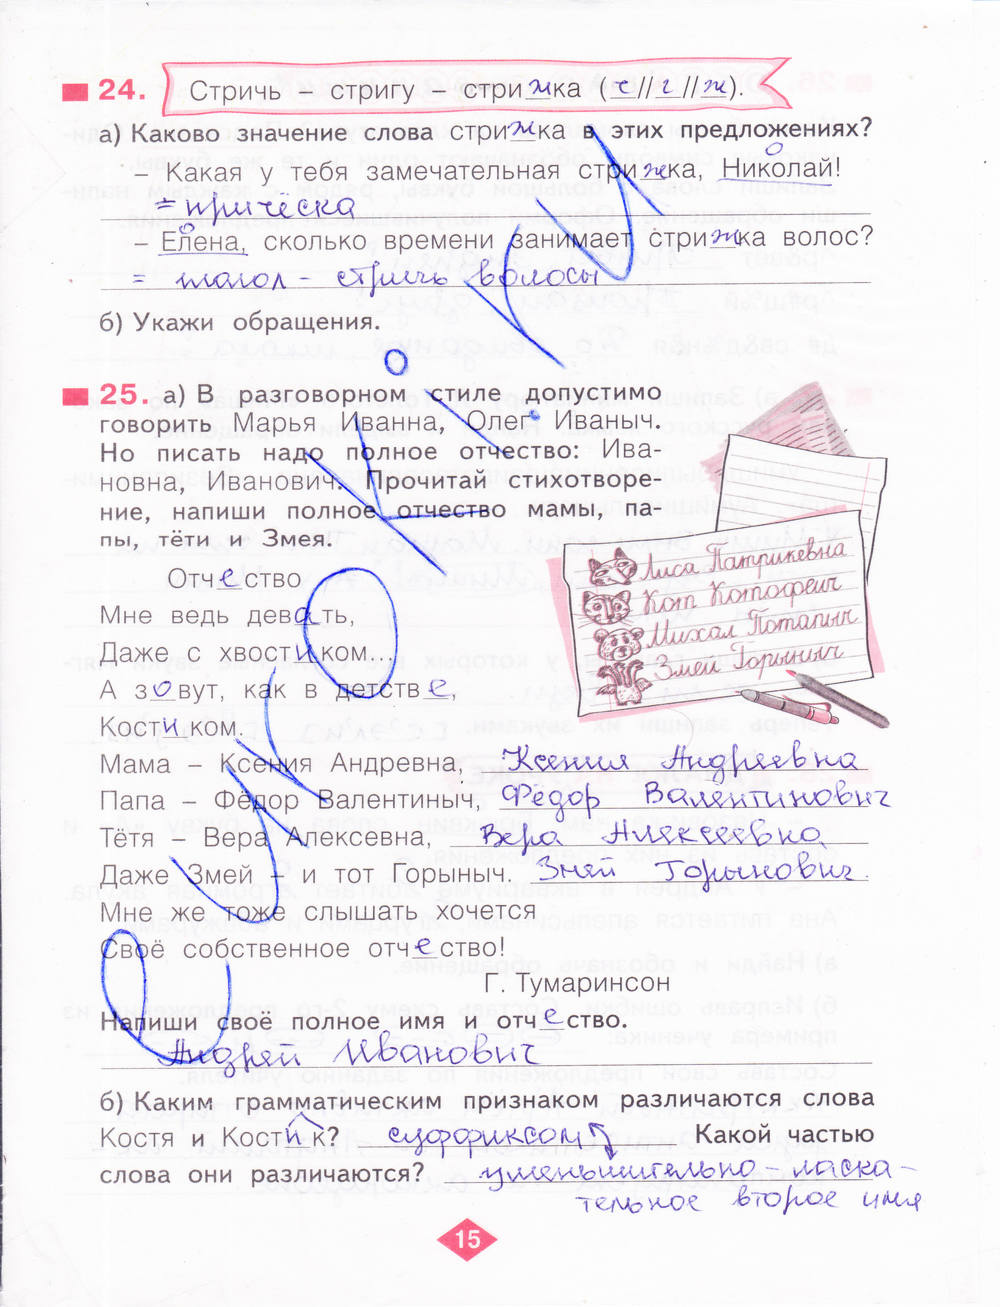 24. Стричь – стригу – стрижка (ч//г//ж).
а) Каково значение слова стрижка в этих предложениях?
– Какая у тебя замечательная стрижка, Николай!
= причёска
– Елена, сколько времени занимает стрижка волос?
= глагол - стричь волосы
б) Укажи обращения.
25. а) В разговорном стиле допустимо
говорить Марья Иванна, Олег Иваныч.
Но писать надо полное отчество: Ива-
новна, Иванович. Прочитай стихотворе-
ние, напиши полное отчество мамы, па-
пы, тёти и Змея.
Лиса Патрикевна
Кот Котофеич
Михал Потапыч
Змей Горыныч
Отчество
Мне ведь девать,
Даже с хвостиком...
А зовут, как в детстве,
Костиком.
Мама – Ксения Андревна, Ксения Андреевна
Папа – Фёдор Валентиныч, Фёдор Валентинович
Тётя – Вера Алексевна, Вера Алексеевна
Даже Змей – и тот Горыныч. Змей Горынович
Мне же тоже слышать хочется
Своё собственное отчество!
Г. Тумаринсон
Напиши своё полное имя и отчество.
Андрей Иванович
б) Каким грамматическим признаком различаются слова
Костя и Костик? суффиксом Какой частью
слова они различаются? уменьшительно-ласка-
тельное второе имя
15